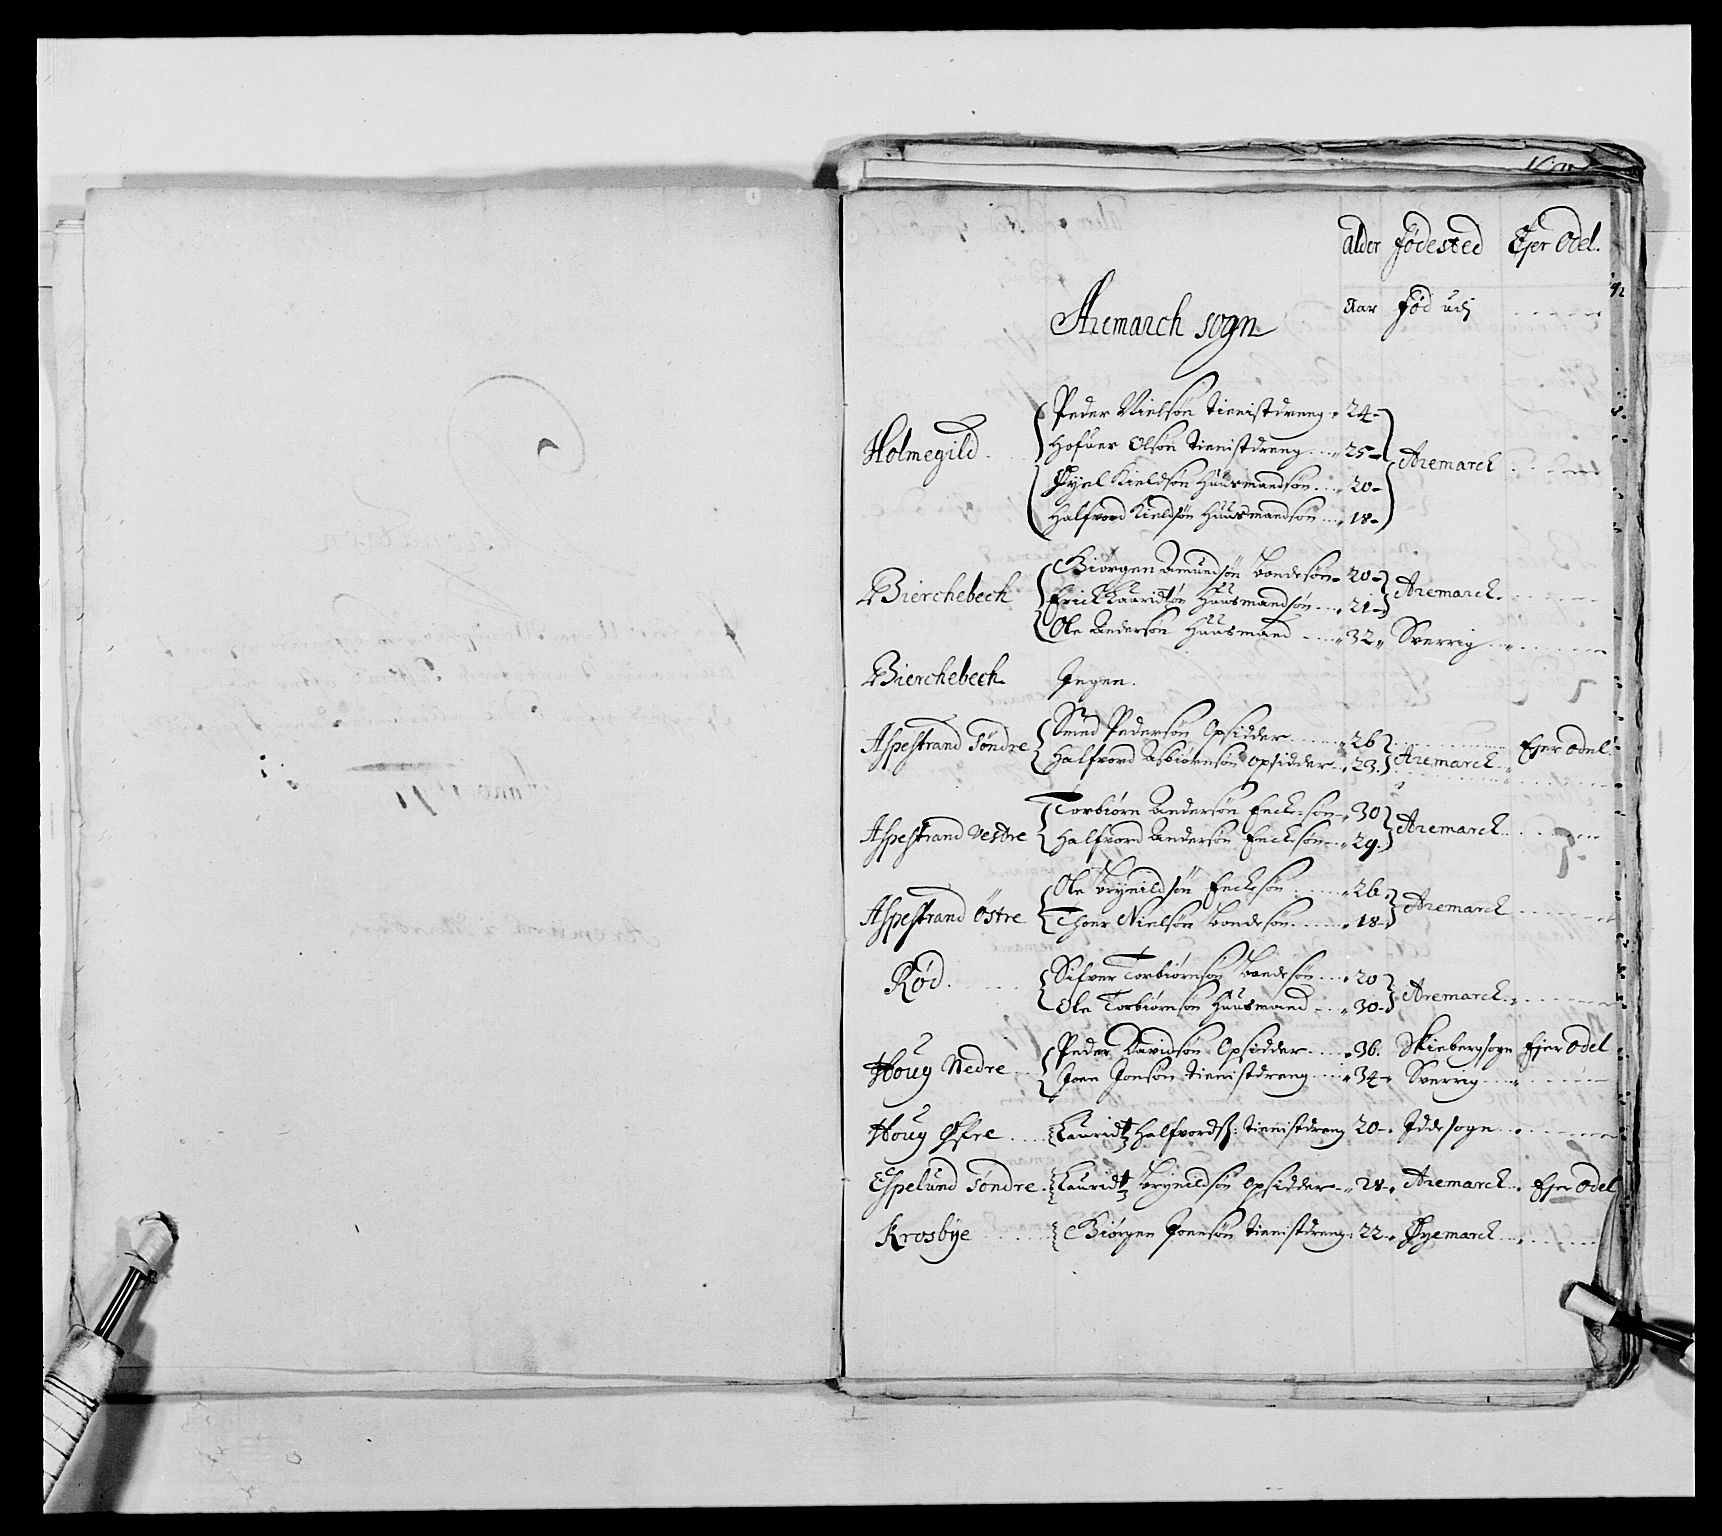 alder fødested Ejer Odel.
Aremarch sogn
Aar fød udj
Holmegild
Peder Nielsøn tienistdreng 24
Hofuer Olsøn tienistdreng 25 Aremarck
Øyel Kieldsøn Huusmandsøn 20
Halfvord Kieldsøn Huusmandsøn 18
Bierchebech
Biørgen Amundsøn Bondesøn 20 Aremarck
Erick Lauridtsøn Huusmandsøn 21
Ole Andersøn Huusmand 32 Sverrig
Bierchebech Ingen.
Aspestrand Søndre
Smed Pedersøn Opsidder 26 Ejer Odel
Halfvord Asbiørnsøn Opsidder 23. Aremarck
Aspestrand Vestre
Torbiørn Andersøn Enckesøn 30 Aremarck
Halfvord Andersøn Enckesøn 29
Aspestrand Østre
Ole Brynildsøn Enckesøn 26 Aremarck
Thoer Nielsøn Bondesøn 18
Rød
Sifver Torbiørnsøn Bondesøn 20
Ole Torbiørnsøn Huusmand 30 Aremarck
Houg Nedre
Peder Davidsøn Opsidder 36. Skiebergsogn Ejer Odel
Joen Jonsøn tienistdreng 34 Sverrig
Houg Øfre Lauridtz Halfvords: tienistdreng 20 Iddesogn
Espelund Søndre Lauridtz Brynildsøn Opsidder 28 Aremarck Ejer Odel
Krosbye Biørgen Joensøn tienistdreng 22 Øyemarck